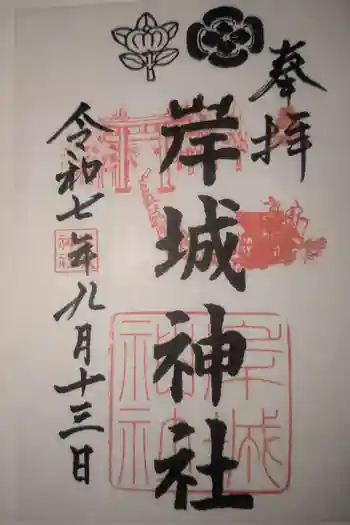 奉拝
岸城神社
令和七年九月十三日
岸城神社